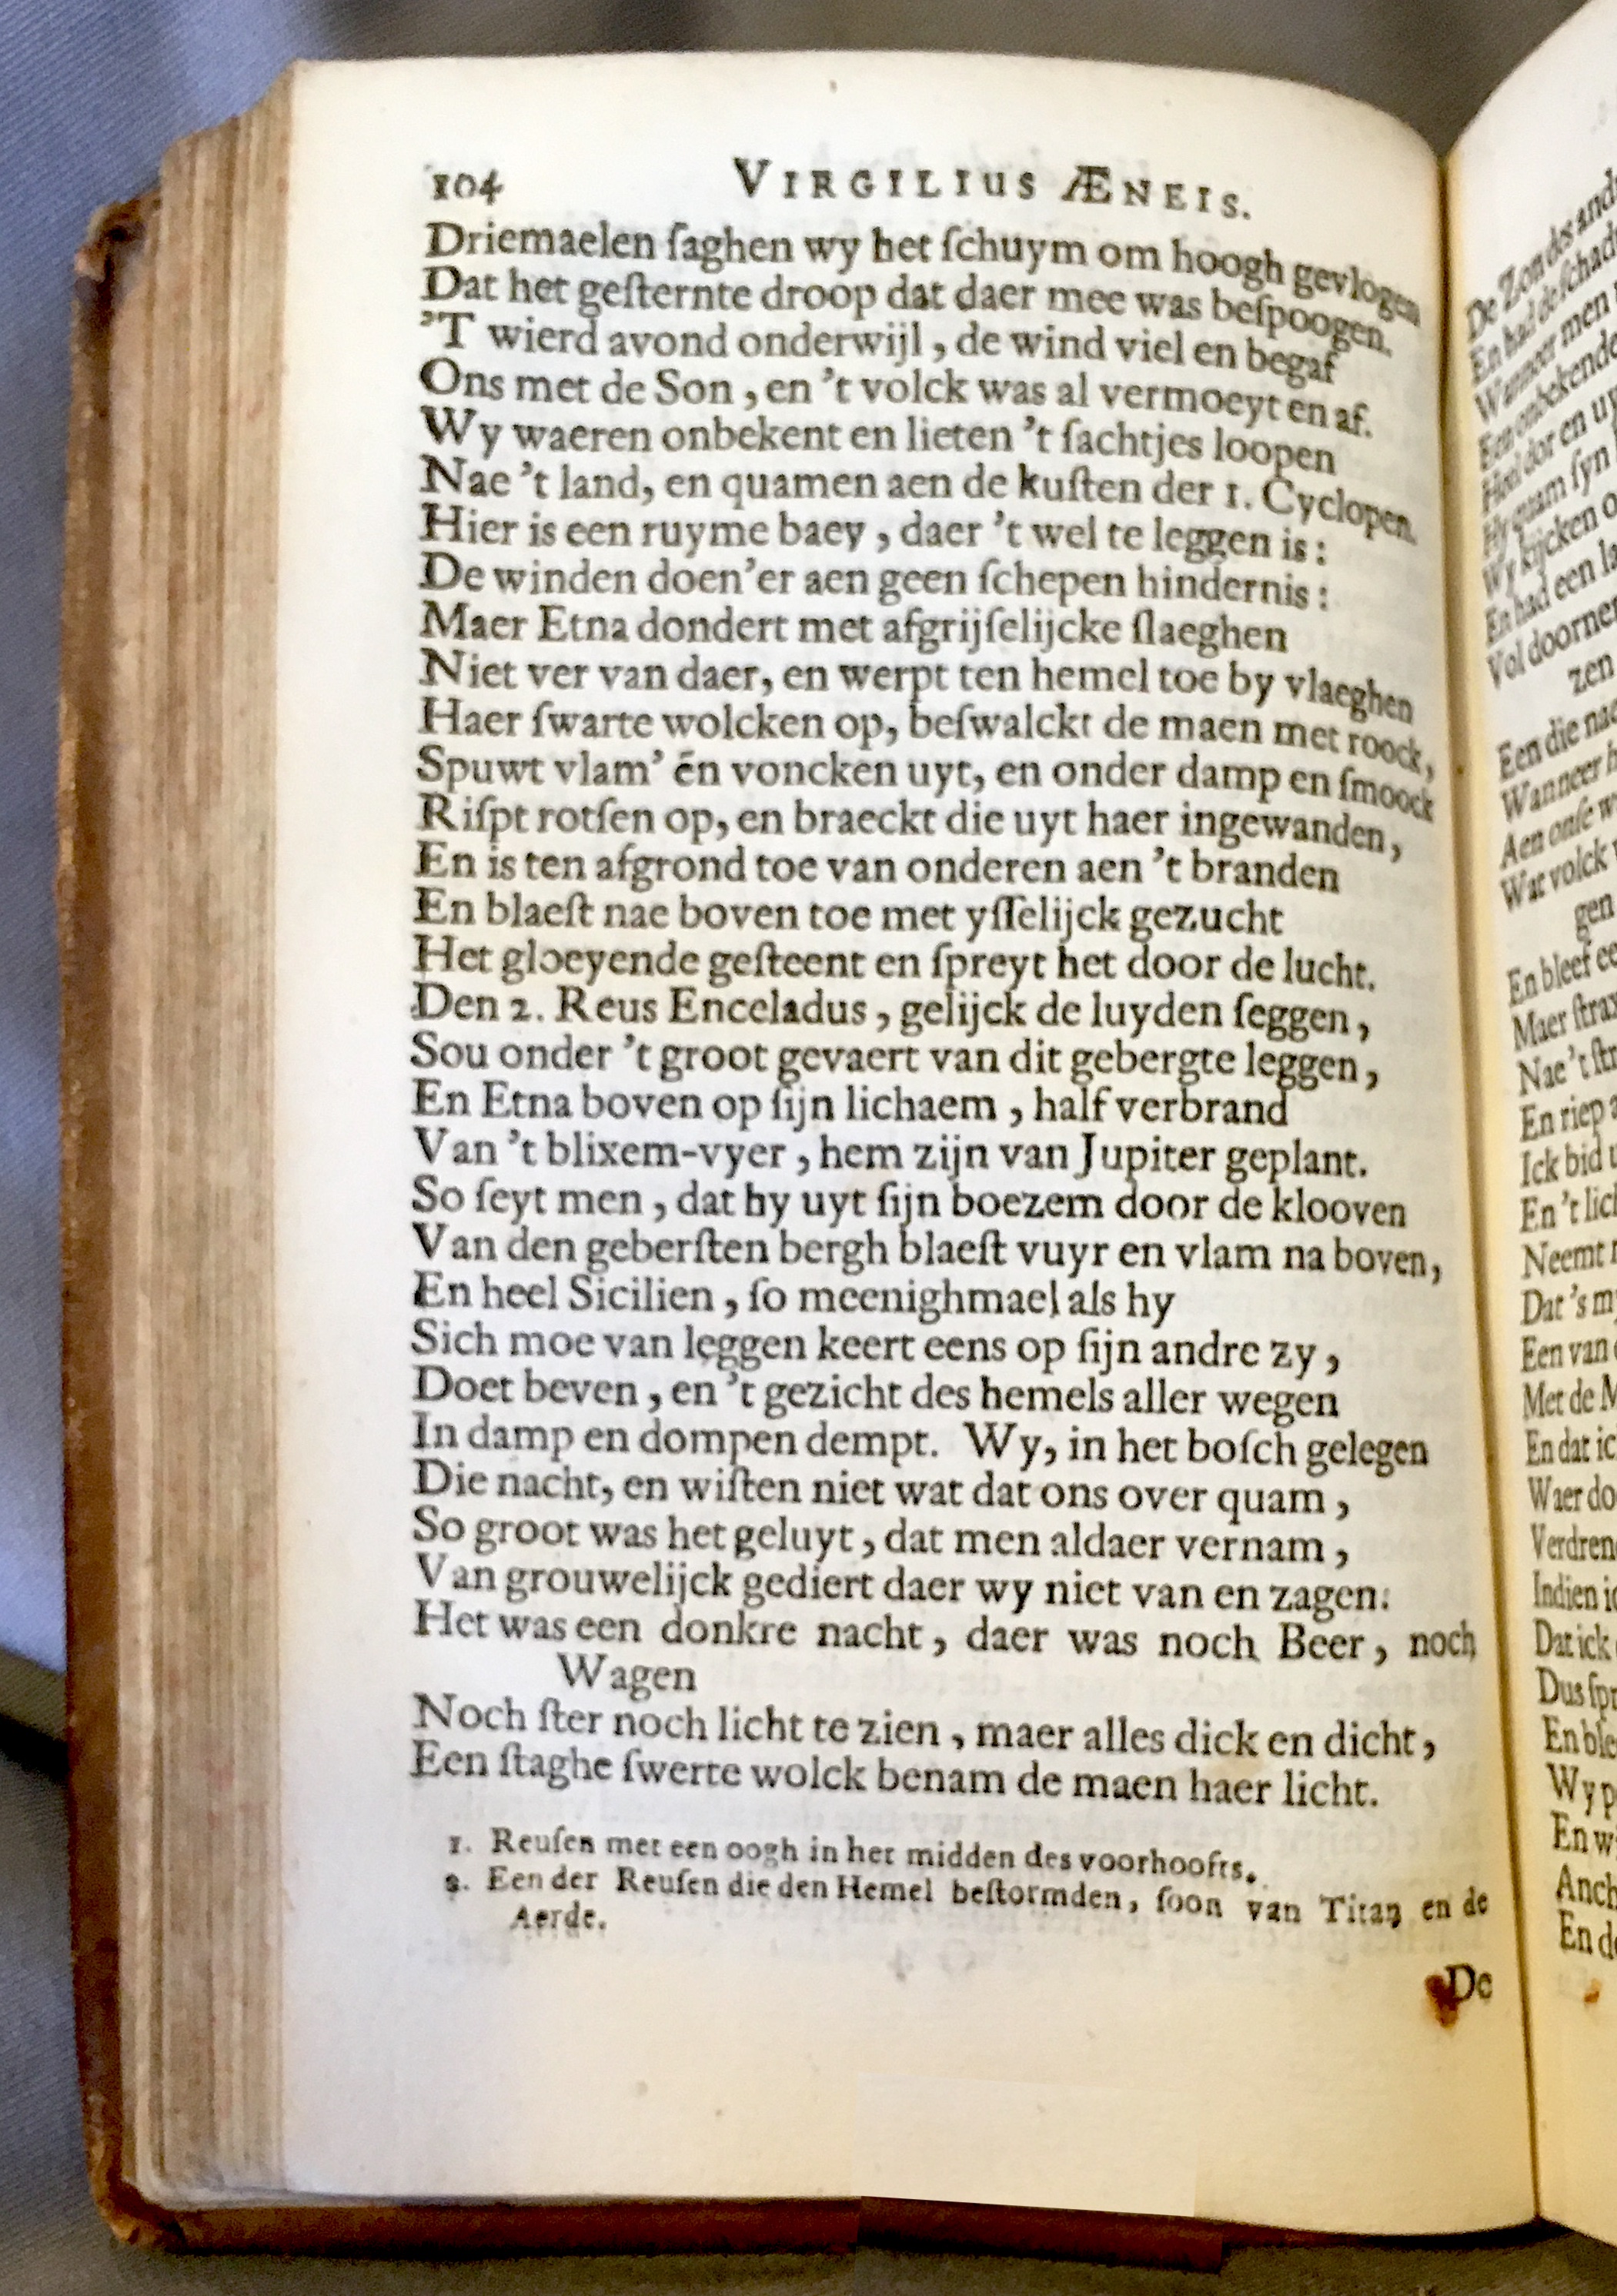 104 VIRGILIUS ÆNEIS.
Driemaelen ſaghen wy het ſchuym om hoogh gevlogen
Dat het geſternte droop dat daer mee was beſpoogen.
'T wierd avond onderwijl, de wind viel en begaf
Ons met de Son, en 't volck was al vermoeyt en af.
Wy waeren onbekent en lieten 't ſachtjes loopen
Nae 't land, en quamen aen de kuſten der 1. Cyclopen.
Hier is een ruyme baey, daer 't wel te leggen is:
De winden doen'er aen geen ſchepen hindernis:
Maer Etna dondert met afgrijſelijcke ſlaeghen
Niet ver van daer, en werpt ten hemel toe by vlaeghen
Haer ſwarte wolcken op, beſwalckt de maen met roock,
Spuwt vlam' én voncken uyt, en onder damp en ſmoock
Riſpt rotſen op, en braeckt die uyt haer ingewanden,
En is ten afgrond toe van onderen aen 't branden
En blaeſt nae boven toe met yſſelijck gezucht
Het gloeyende geſteent en ſpreyt het door de lucht.
Den 2. Reus Enceladus, gelijck de luyden ſeggen,
Sou onder 't groot gevaert van dit gebergte leggen,
En Etna boven op ſijn lichaem, half verbrand
Van 't blixem-vyer, hem zijn van Jupiter geplant.
So ſeyt men, dat hy uyt ſijn boezem door de klooven
Van den geberſten bergh blaeſt vuyr en vlam na boven,
En heel Sicilien, ſo meenighmael als hy
Sich moe van leggen keert eens op ſijn andre zy,
Doet beven, en 't gezicht des hemels aller wegen
In damp en dompen dempt. Wy, in het boſch gelegen
Die nacht, en wiſten niet wat dat ons over quam,
So groot was het geluyt, dat men aldaer vernam,
Van grouwelijck gediert daer wy niet van en zagen:
Het was een donkre nacht, daer was noch Beer, noch
Wagen
Noch ſter noch licht te zien, maer alles dick en dicht,
Een ſtaghe ſwerte wolck benam de maen haer licht.
1. Reuſen met een oogh in het midden des voorhoofts.
2. Een der Reuſen die den Hemel beſtormden, ſoon van Titan en de
Aerde.
De
De Zon des
En had de
Wanneer men
Een onbekende
Heel dor en
Hy quam ſyn
Wy kijcken
En had een
Vol doornen
zen
Een die
Wanneer
Aen onſe
Wat volck
gen
En bleef
Maer ſtrax
Nae 't
En riep
Ick bid
En 't
Neemt
Dat 's
Een van
Met de
En dat
Waer
Indien
Dat ick
Dus
En
Wy
En
En